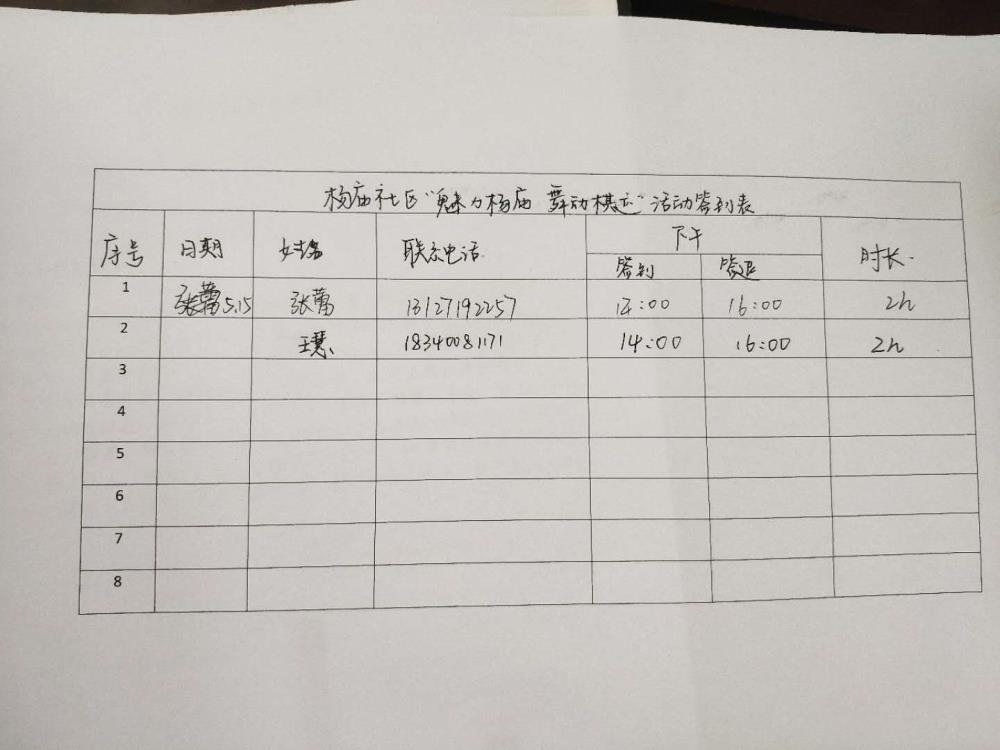 杨庙社区“魅力杨庙 舞动棋迹”活动签到表
序号 日期 姓名 联系电话 下午 时长
签到 签退
1 5.15 张蕾 13127192257 14:00 16:00 2h
2 王慧 18340081171 14:00 16:00 2h
3
4
5
6
7
8